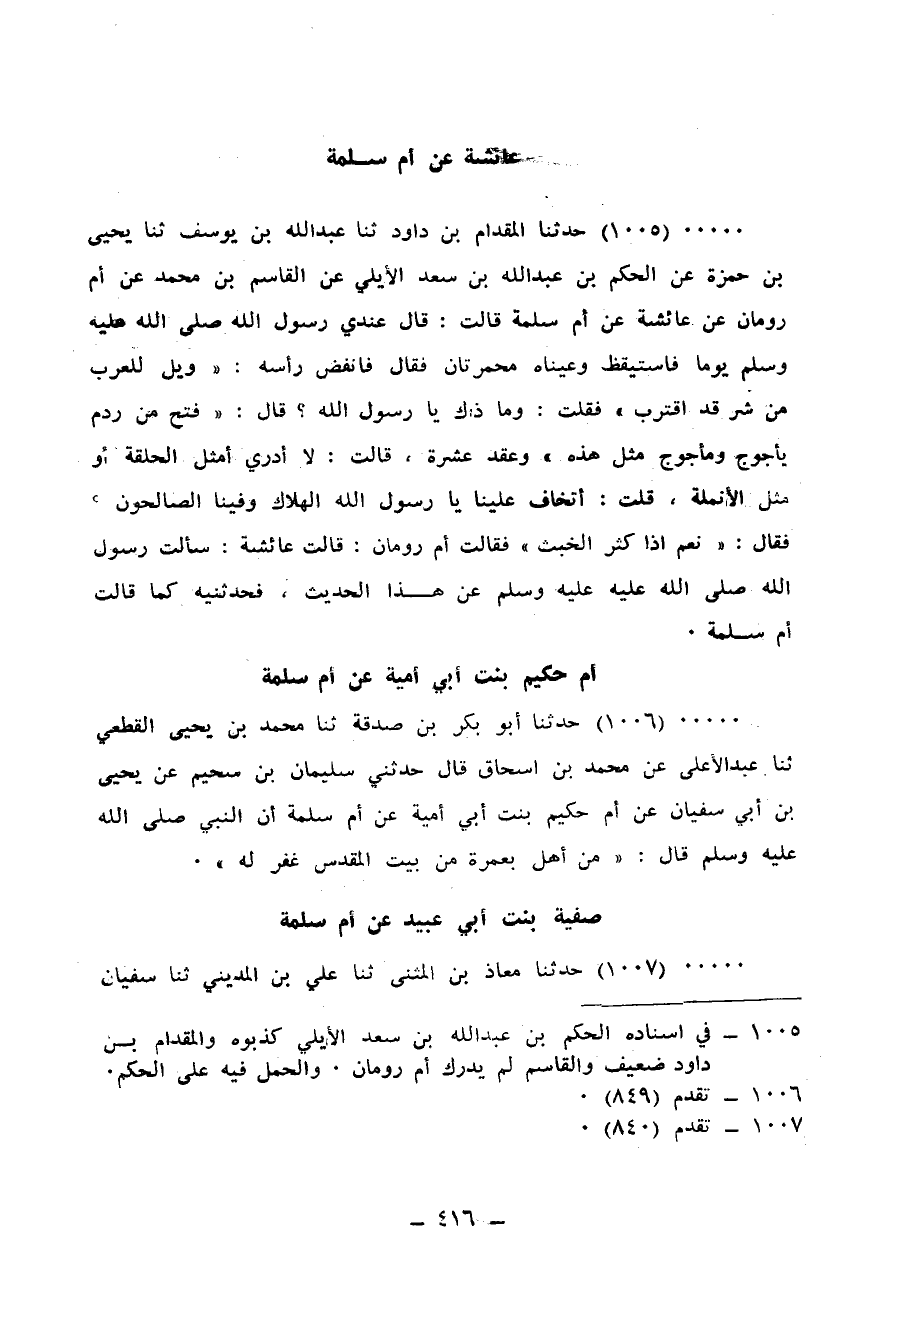 عائشة عن أم سلمة
..... (١٠٠٥) حدثنا المقدام بن داود ثنا عبدالله بن يوسف ثنا يحيى
بن حمزة عن الحكم بن عبدالله بن سعد الأيلي عن القاسم بن محمد عن أم
رومان عن عائشة عن أم سلمة قالت : قال عندي رسول الله صلى الله عليه
وسلم يوما فاستيقظ وعيناه محمرتان فقال فانفض رأسه : « ويل للعرب
من شر قد اقترب » فقلت : وما ذاك يا رسول الله ؟ قال : « فتح من ردم
يأجوج ومأجوج مثل هذه » وعقد عشرة ، قالت : لا أدري أمثل الحلقة أو
مثل الأنملة ، قلت : أتخاف علينا يا رسول الله الهلاك وفينا الصالحون ؟
فقال : « نعم اذا كثر الخبث » فقالت أم رومان : قالت عائشة : سألت رسول
الله صلى الله عليه عليه وسلم عن هذا الحديث ، فحدثنيه كما قالت
أم سلمة .
أم حكيم بنت أبي أمية عن أم سلمة
..... (١٠٠٦) حدثنا أبو بكر بن صدقة ثنا محمد بن يحيى القطعي
ثنا عبدالأعلى عن محمد بن اسحاق قال حدثني سليمان بن سحيم عن يحيى
بن أبي سفيان عن أم حكيم بنت أبي أمية عن أم سلمة أن النبي صلى الله
عليه وسلم قال : « من أهل بعمرة من بيت المقدس غفر له » .
صفية بنت أبي عبيد عن أم سلمة
..... (١٠٠٧) حدثنا معاذ بن المثنى ثنا علي بن المديني ثنا سفيان
١٠٠٥ – في اسناده الحكم بن عبدالله بن سعد الأيلي كذبوه والمقدام بن
داود ضعيف والقاسم لم يدرك أم رومان . والحمل فيه على الحكم .
١٠٠٦ – تقدم (٨٤٩) .
١٠٠٧ – تقدم (٨٤٠) .
– ٤١٦ –